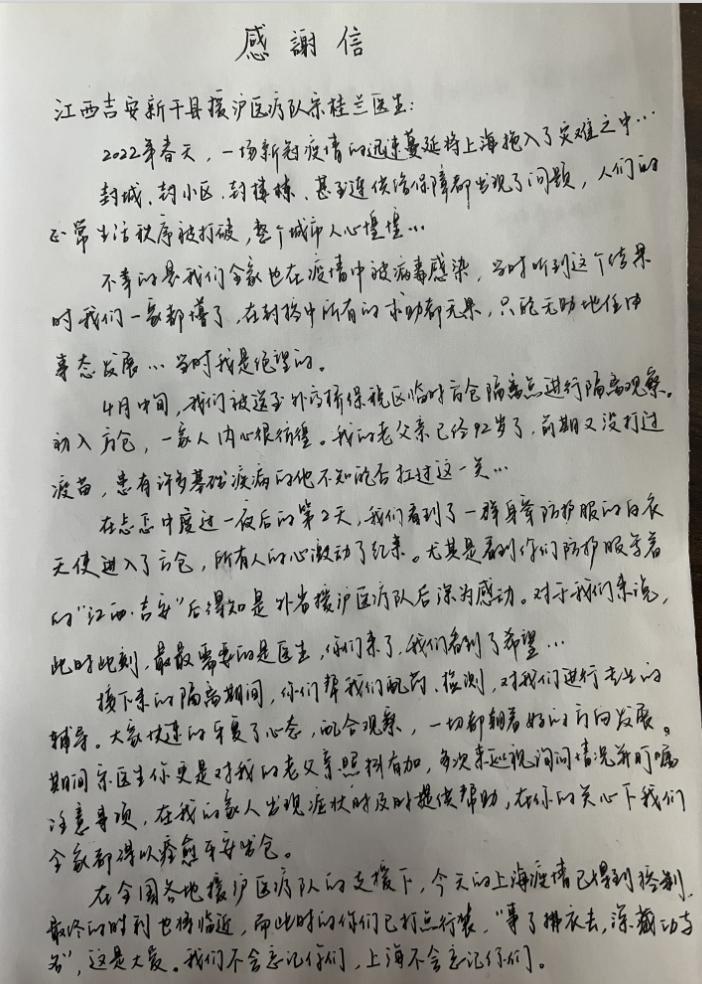 感謝信
江西吉安新干县援沪医疗队宗桂兰医生:
2022年春天,一场新冠疫情的迅速蔓延将上海拖入了灾难之中…
封城、封小区、封楼栋、甚至连供给保障都出现了问题,人们的
正常生活秩序被打破,整个城市人心惶惶…
不幸的是我们全家也在疫情中被病毒感染,当时听到这个结果
时我们一家都懵了,在封控中所有的求助都无果,只能无助地任由
事态发展…当时我是绝望的。
4月中旬,我们被送至外高桥保税区临时方仓隔离点进行隔离观察。
初入方仓,一家人内心很彷徨。我的老父亲已经92岁了,前期又没打过
疫苗,患有许多基础疾病的他不知能否扛过这一关…
在忐忑中度过一夜后的第2天,我们看到了一群身穿防护服的白衣
天使进入了方仓,所有人的心激动了起来。尤其是看到你们防护服写着
的"江西·吉安"后得知是外省援沪医疗队后深为感动。对于我们来说,
此时此刻,最最需要的是医生,你们来了,我们看到了希望…
接下来的隔离期间,你们帮我们配药、检测,对我们进行专业的
辅导。大家快速的平复了心态,配合观察,一切都朝着好的方向发展。
期间宗医生你更是对我的老父亲照料有加,多次来巡视询问情况并叮嘱
注意事项,在我的家人出现症状时及时提供帮助,在你的关心下我们
全家都得以痊愈平安出仓。
在全国各地援沪医疗队的支援下,今天的上海疫情已得到控制,
最终的胜利也将临近,而此时的你们已打点行装,"事了拂衣去,深藏功与
名",这是大爱。我们不会忘记你们,上海不会忘记你们。